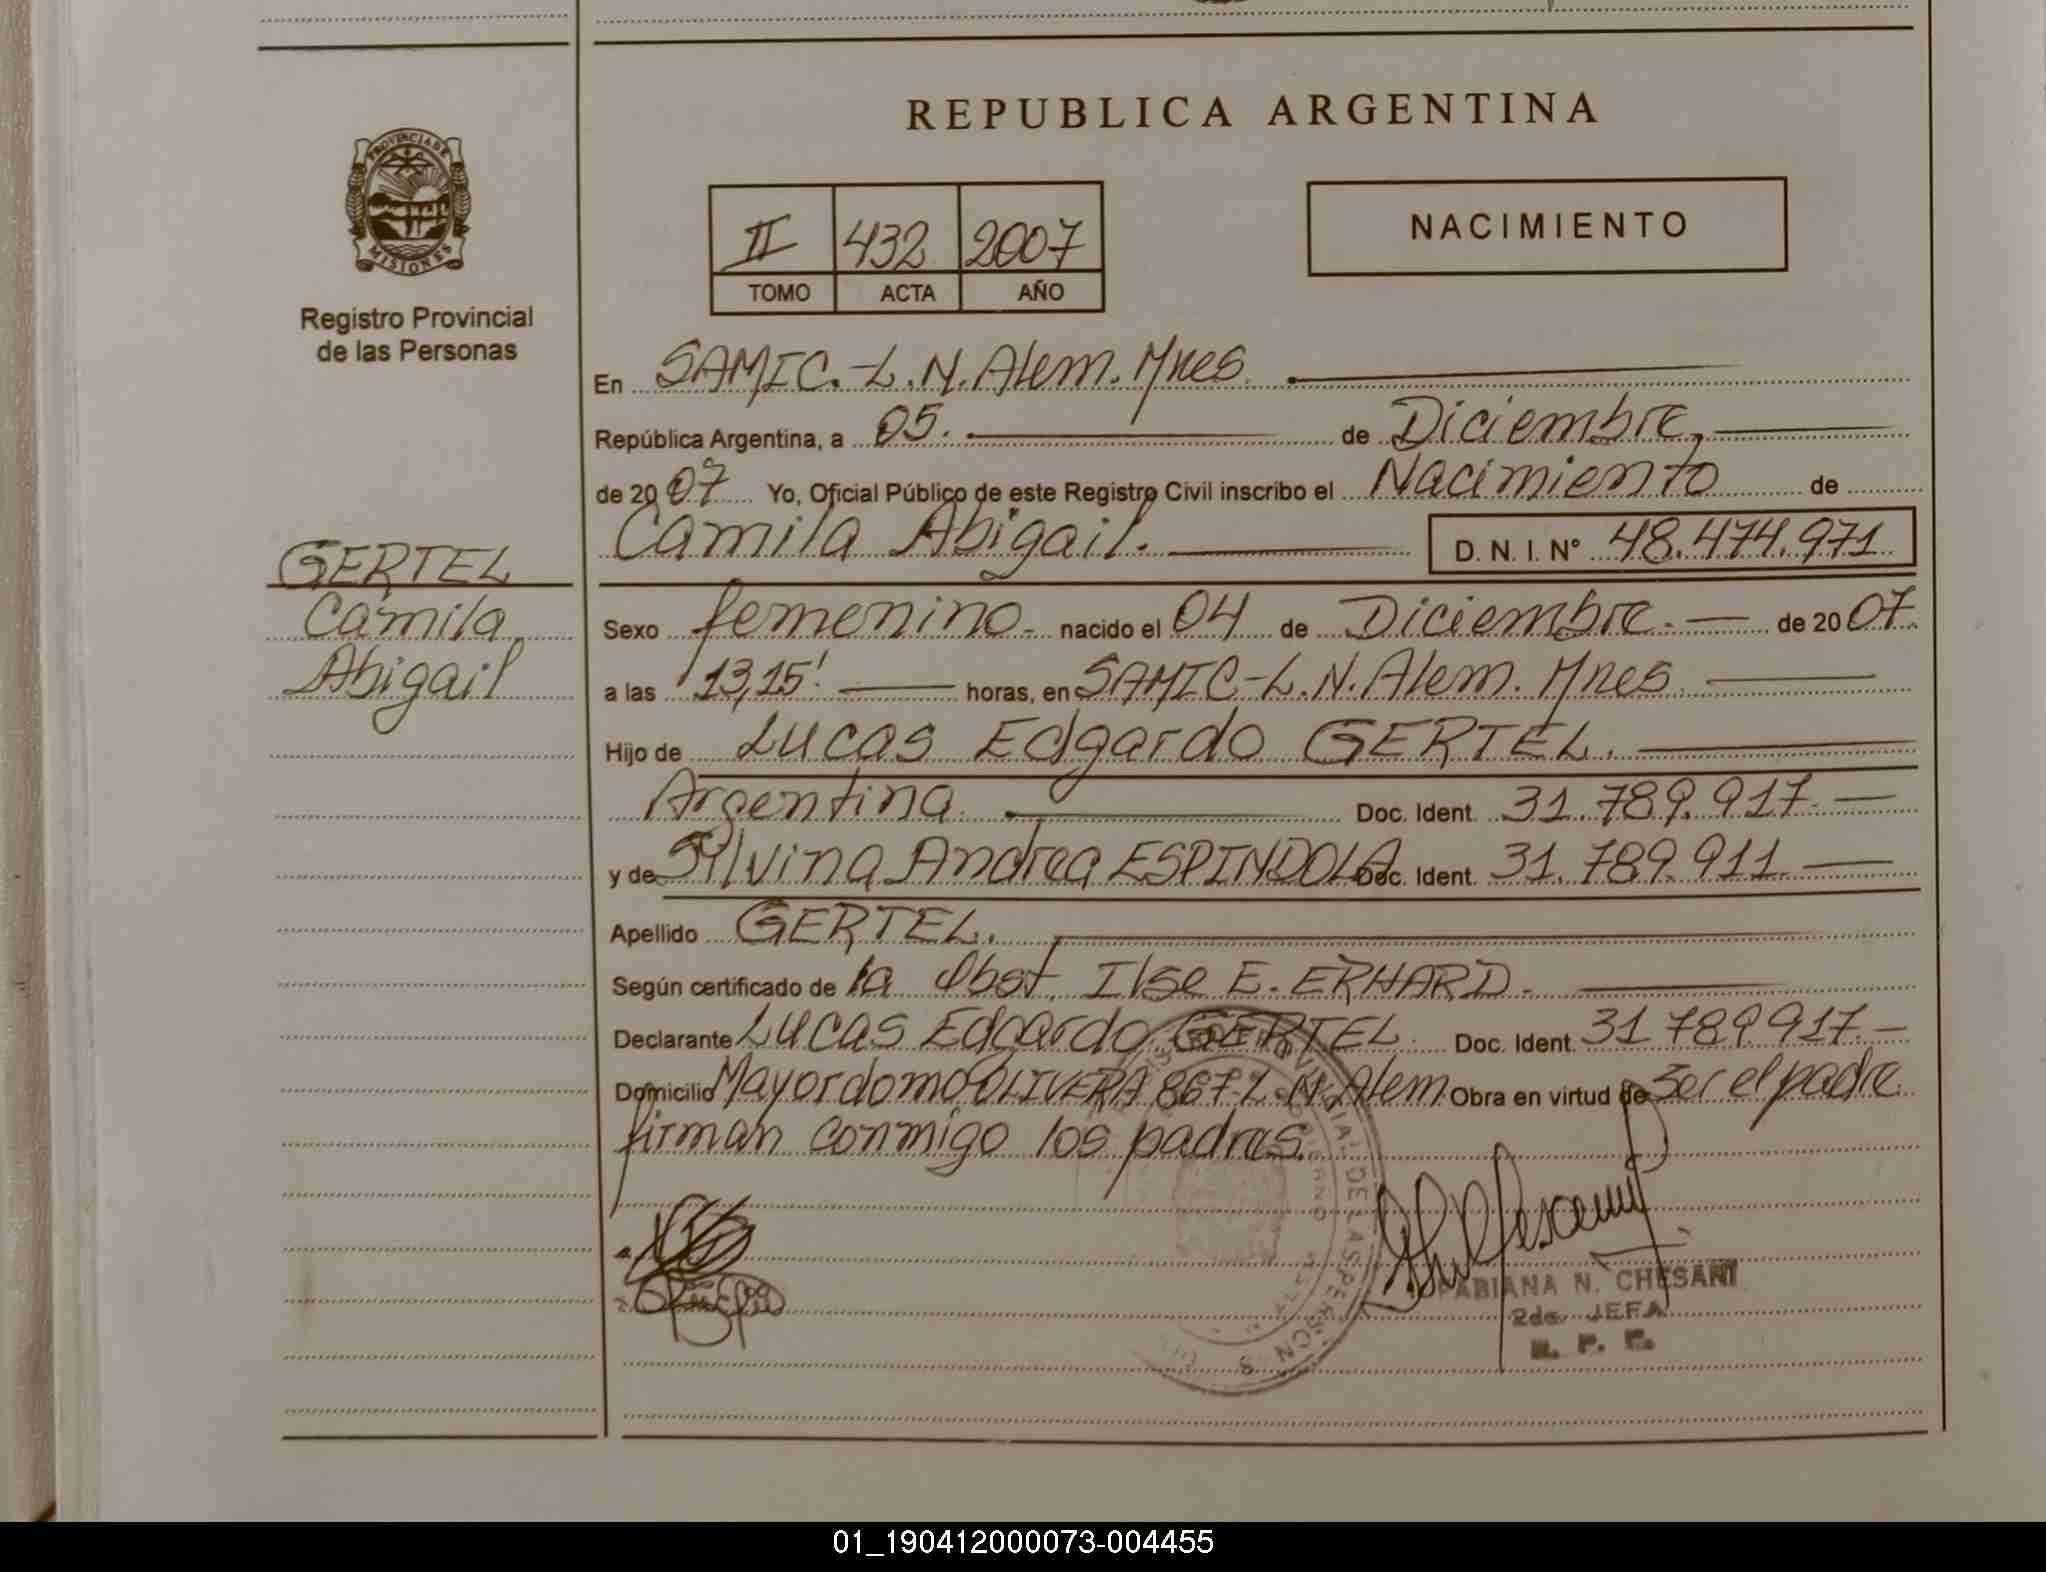 REPUBLICA ARGENTINA
PROVINCIA DE
MISIONES
Registro Provincial
de las Personas
II 432 2007
TOMO ACTA AÑO
NACIMIENTO
En SAMIC.-L.N.Alem.Mnes.
República Argentina, a 05. de Diciembre,
de 2007 Yo, Oficial Público de este Registro Civil inscribo el Nacimiento de
Camila Abigail. D. N. I. Nº 48.474.971
GERTEL
Camila
Abigail
Sexo femenino. nacido el 04 de Diciembre. de 2007.
a las 13,15' horas, en SAMIC-L.N.Alem. Mnes.
Hijo de Lucas Edgardo GERTEL.
Argentina. Doc. Ident. 31.789.917.
y de Silvina Andrea ESPINDOLA Doc. Ident. 31.789.911
Apellido GERTEL.
Según certificado de la Obst. Ilse E. ERHARD.
Declarante Lucas Edgardo GERTEL. Doc. Ident. 31789917.
Domicilio Mayordomo OLIVERA 867-L.N.Alem Obra en virtud de ser el padre
firman conmigo los padres.
FABIANA N. CHESANI
2da. JEFA
R. P. P.
01_190412000073-004455